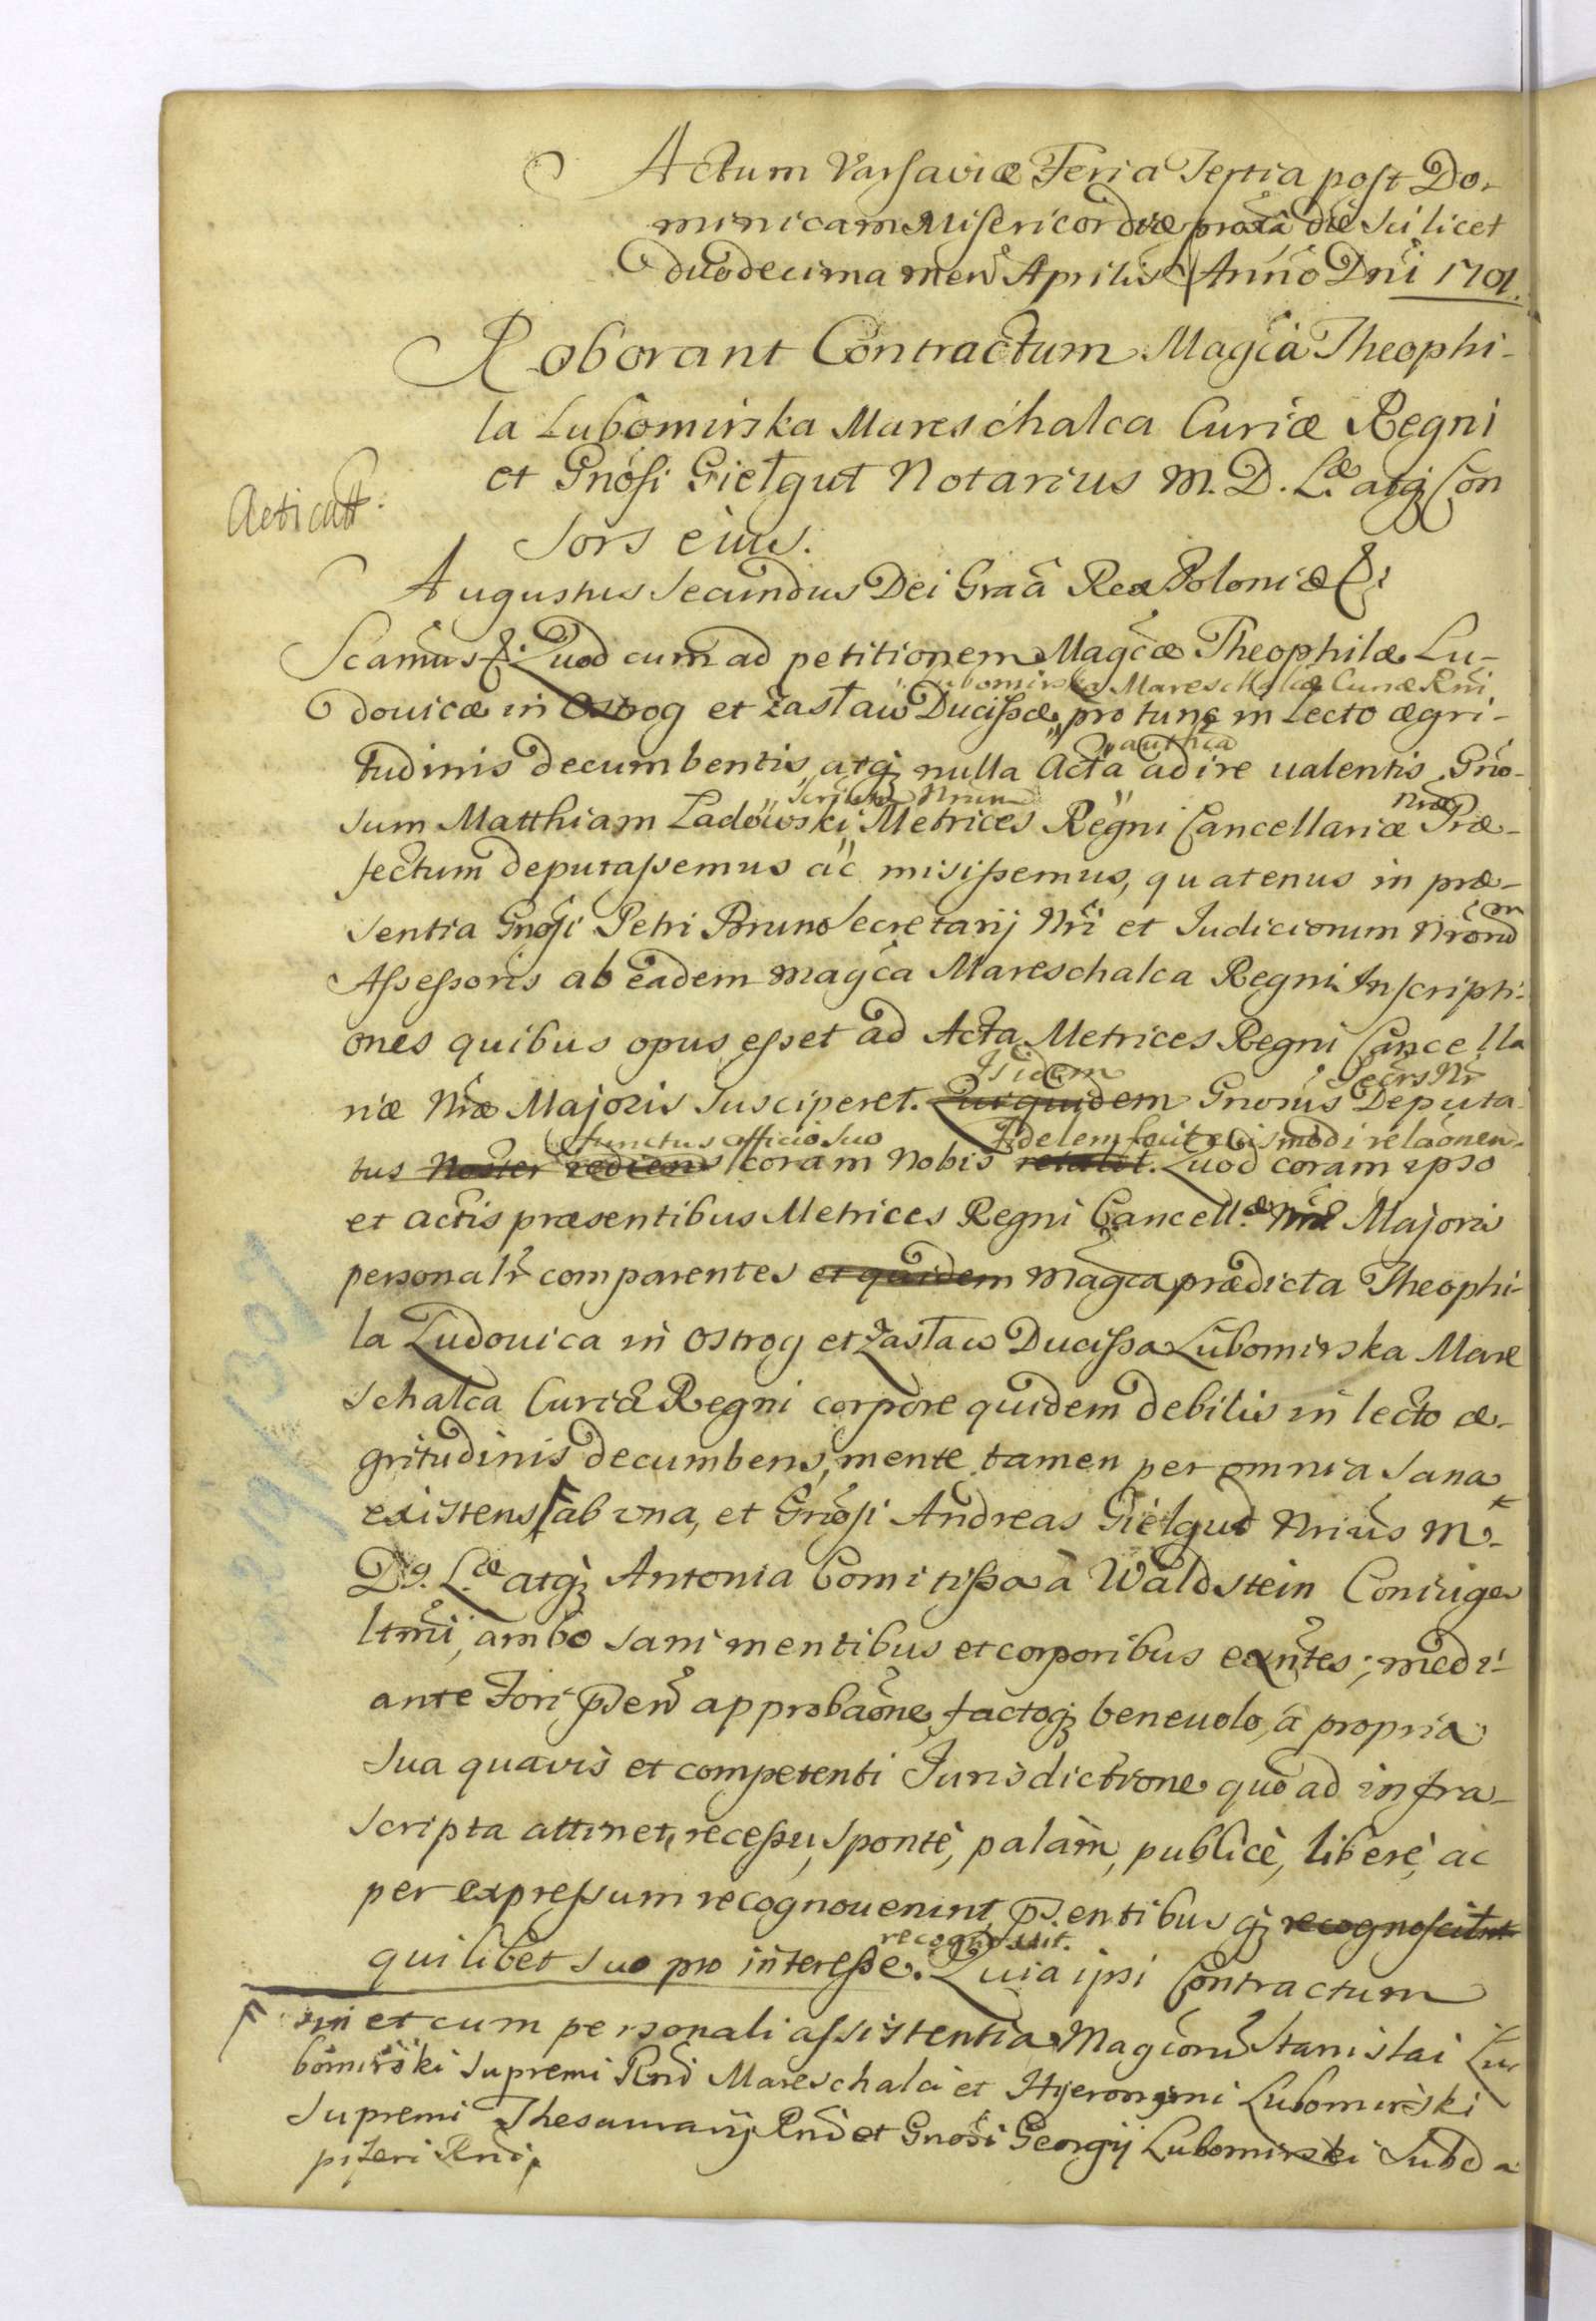 Actum Varsaviæ Feria Tertia post Do-
minicam Misericordiæ proxã die scilicet
duodecima mens Aprilis Anno Dni 1701.
Roborant Contractum Magca Theophi-
la Lubomirska Mareschalca Curiæ Regni
et Gnosi Giełgut Notarius M. D. L.æ atq Con
sors eius.
Acticatt:
Augustus Secundus Dei Graã Rex Poloniæ &
Scamus & Quod cum ad petitionem Magcæ Theophilæ Lu-
Lubomirska Mareschalcæ Curiæ Rni
dovicæ in Ostrog et Zasław Ducissæ, pro tunc in Lecto ægri-
authca
tudinis decumbentis, atq nulla Acta adire valentis, Gno-
Nræ
sum Matthiam Ladowski Metrices Regni Cancellariæ Præ-
fectum deputassemus ac misissemus, quatenus in præ-
sentia Gnosi Petri Bruno Secretarij Nri et Iudiciorum Nrorum
Assessoris ab eadem Magca Mareschalca Regni Inscripti-
ones quibus opus esset ad Acta Metrices Regni Cancella
Isidem Secrs Nr
riæ Nræ Majoris susciperet. Qui quidem Gnosus Deputa-
functus officio suo Fidelem fecit eiusmodi relaonem.
tus Noster rediens coram Nobis retulit. Quod coram ipso
et actis præsentibus Metrices Regni Cancell.æ Nræ Majoris
personalr comparentes et quidem Magca prædicta Theophi-
la Ludovica in Ostrog et Zasław Ducissa Lubomirska Mare
schalca Curiæ Regni corpore quidem debilis in lecto æ-
gritudinis decumbens, mente tamen per omnia sana
existens ab una, et Gnosi Andreas Giełgud Nrius M.
D. L.æ atq Antonia Comitissa à Waldstein Coniuges
ltmi, ambo sani mentibus et corporibus exntes; medi-
ante Fori psen approbaone, factoq benevolo, à propria
sua quavis et competenti Jurisdictione quo ad infra-
scripta attinet, recessu, sponte, palàm, publicè, liberè, ac
per expressum recognoverunt, psentibus q recognoscunt
recognoscit.
quilibet suo pro interesse. Quia ipsi Contractum
in et cum personali assistentia Magcorum Stanislai Lu-
bomirski Supremi Rni Mareschalci et Hyeronymi Lubomirski
Supremi Thesaurarij Rni et Gnosi Georgij Lubomirski Subda
piferi Rni,